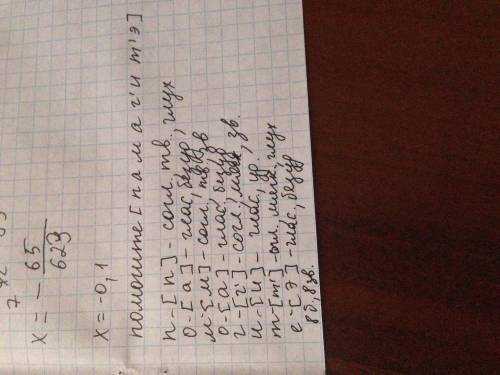 x = - 65/629
x = -0,1
помогите [п а м а г' и т' э]
п - [п] - согл, тв. глух
о - [а] - глас, безур,
м - [м] - согл, тв, зв
о - [а] - глас, безур
г - [г'] - согл, мягк, зв.
и - [и] - глас, ур.
т - [т'] - согл. мягк, глух
е - [э] - глас, безур
8б, 8зв.